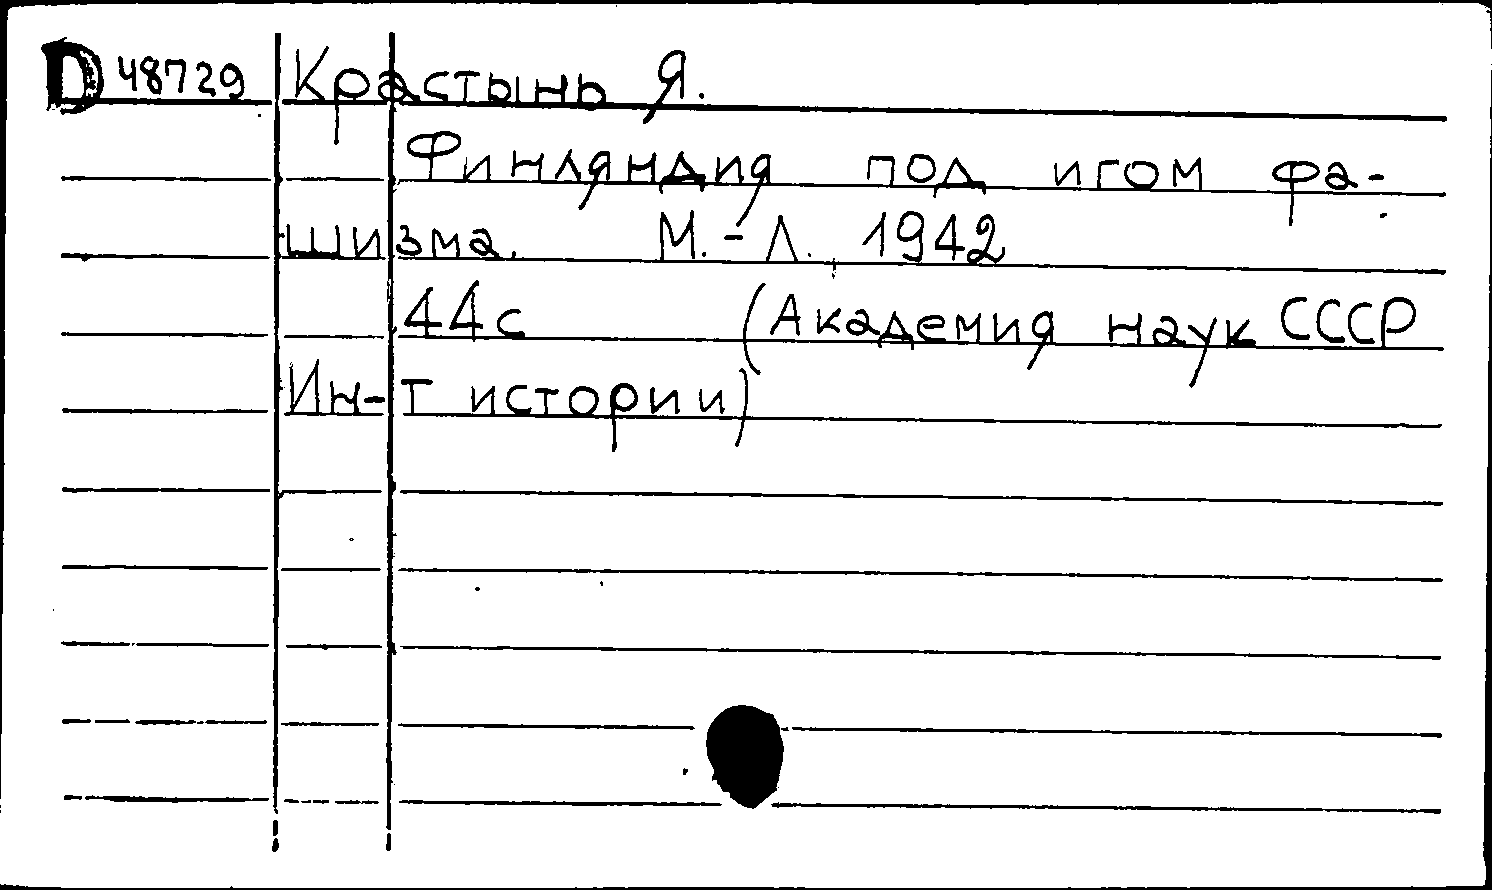 D 48729 Крастынь Я.
Финляндия под игом фа-
шизма. М.-Л., 1942
44с (Академия наук СССР
Ин-т истории)